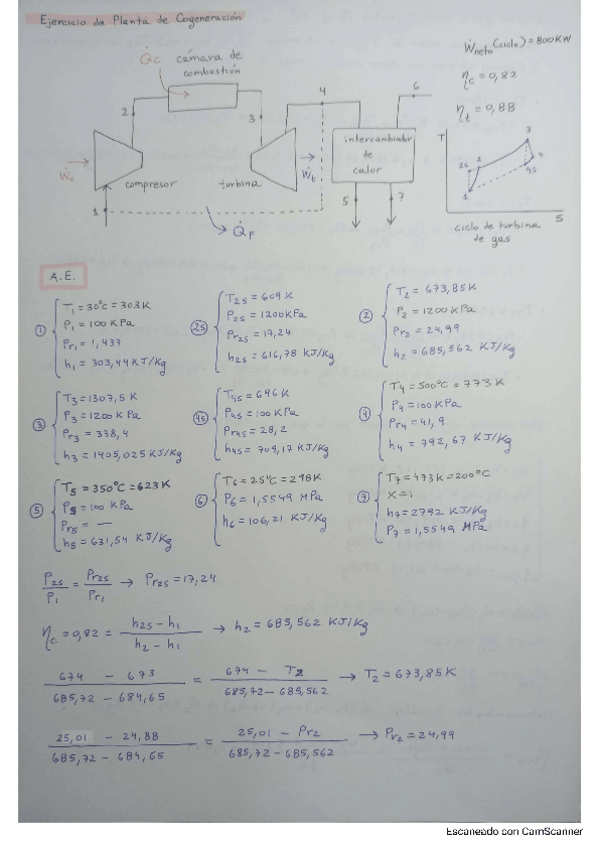 Ejercicio de Planta de Cogeneración
Q̇c cámara de combustión
Ẇneto (ciclo) = 800 KW
ηc = 0,82
ηt = 0,88
2
3
4
6
Ẇc
compresor
turbina
Ẇt
intercambiador de calor
1
5
7
Q̇p
T
3
2s
2
4
4s
1
S
ciclo de turbina de gas
A.E.
① T1 = 30°C = 303K
P1 = 100 KPa
Pr1 = 1,437
h1 = 303,44 KJ/Kg
2s T2s = 609 K
P2s = 1200KPa
Pr2s = 17,24
h2s = 616,78 KJ/Kg
② T2 = 673,85K
P2 = 1200 KPa
Pr2 = 24,99
h2 = 685,562 KJ/Kg
③ T3 = 1307,5 K
P3 = 1200 KPa
Pr3 = 338,4
h3 = 1405,025 KJ/Kg
4s T4s = 696 K
P4s = 100 KPa
Pr4s = 28,2
h4s = 709,17 KJ/Kg
T4 = 500°C = 773K
P4 = 100 KPa
Pr4 = 41,9
h4 = 792,67 KJ/Kg
⑤ T5 = 350°C = 623K
P5 = 100 KPa
Pr5 = —
h5 = 631,54 KJ/Kg
⑥ T6 = 25°C = 298K
P6 = 1,5549 MPa
h6 = 106,21 KJ/Kg
⑦ T7 = 473K = 200°C
X = 1
h7 = 2792 KJ/Kg
P7 = 1,5549 MPa
P2s/P1 = Pr2s/Pr1 → Pr2s = 17,24
ηc = 0,82 = (h2s − h1)/(h2 − h1) → h2 = 685,562 KJ/Kg
(674 − 673)/(685,72 − 684,65) = (674 − T2)/(685,72 − 685,562) → T2 = 673,85K
(25,01 − 24,88)/(685,72 − 684,65) = (25,01 − Pr2)/(685,72 − 685,562) → Pr2 = 24,99
Escaneado con CamScanner